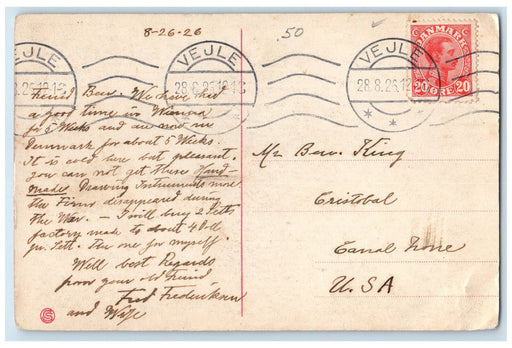 8-26-26
.50
VEJLE
VEJLE
28.8.26.12-13
VEJLE
28.8.26.12
DANMARK
20 ØRE 20
Friend Ben. We have had
a good time in Vienna
for 5 Weeks and are now in
Denmark for about 5 Weeks.
It is cool here but pleasant.
you can not get these Hand-
made Drawing Instruments more
the Firms disappeared during
the War. – I will buy 2 Setts
factory made to about 40 dl
pr. Sett. The one for myself.
Well best Regards
from your old Friend
Fred Frederiksen
and Wife
Mr Ben. King
Cristobal
Canal Zone
U.S.A